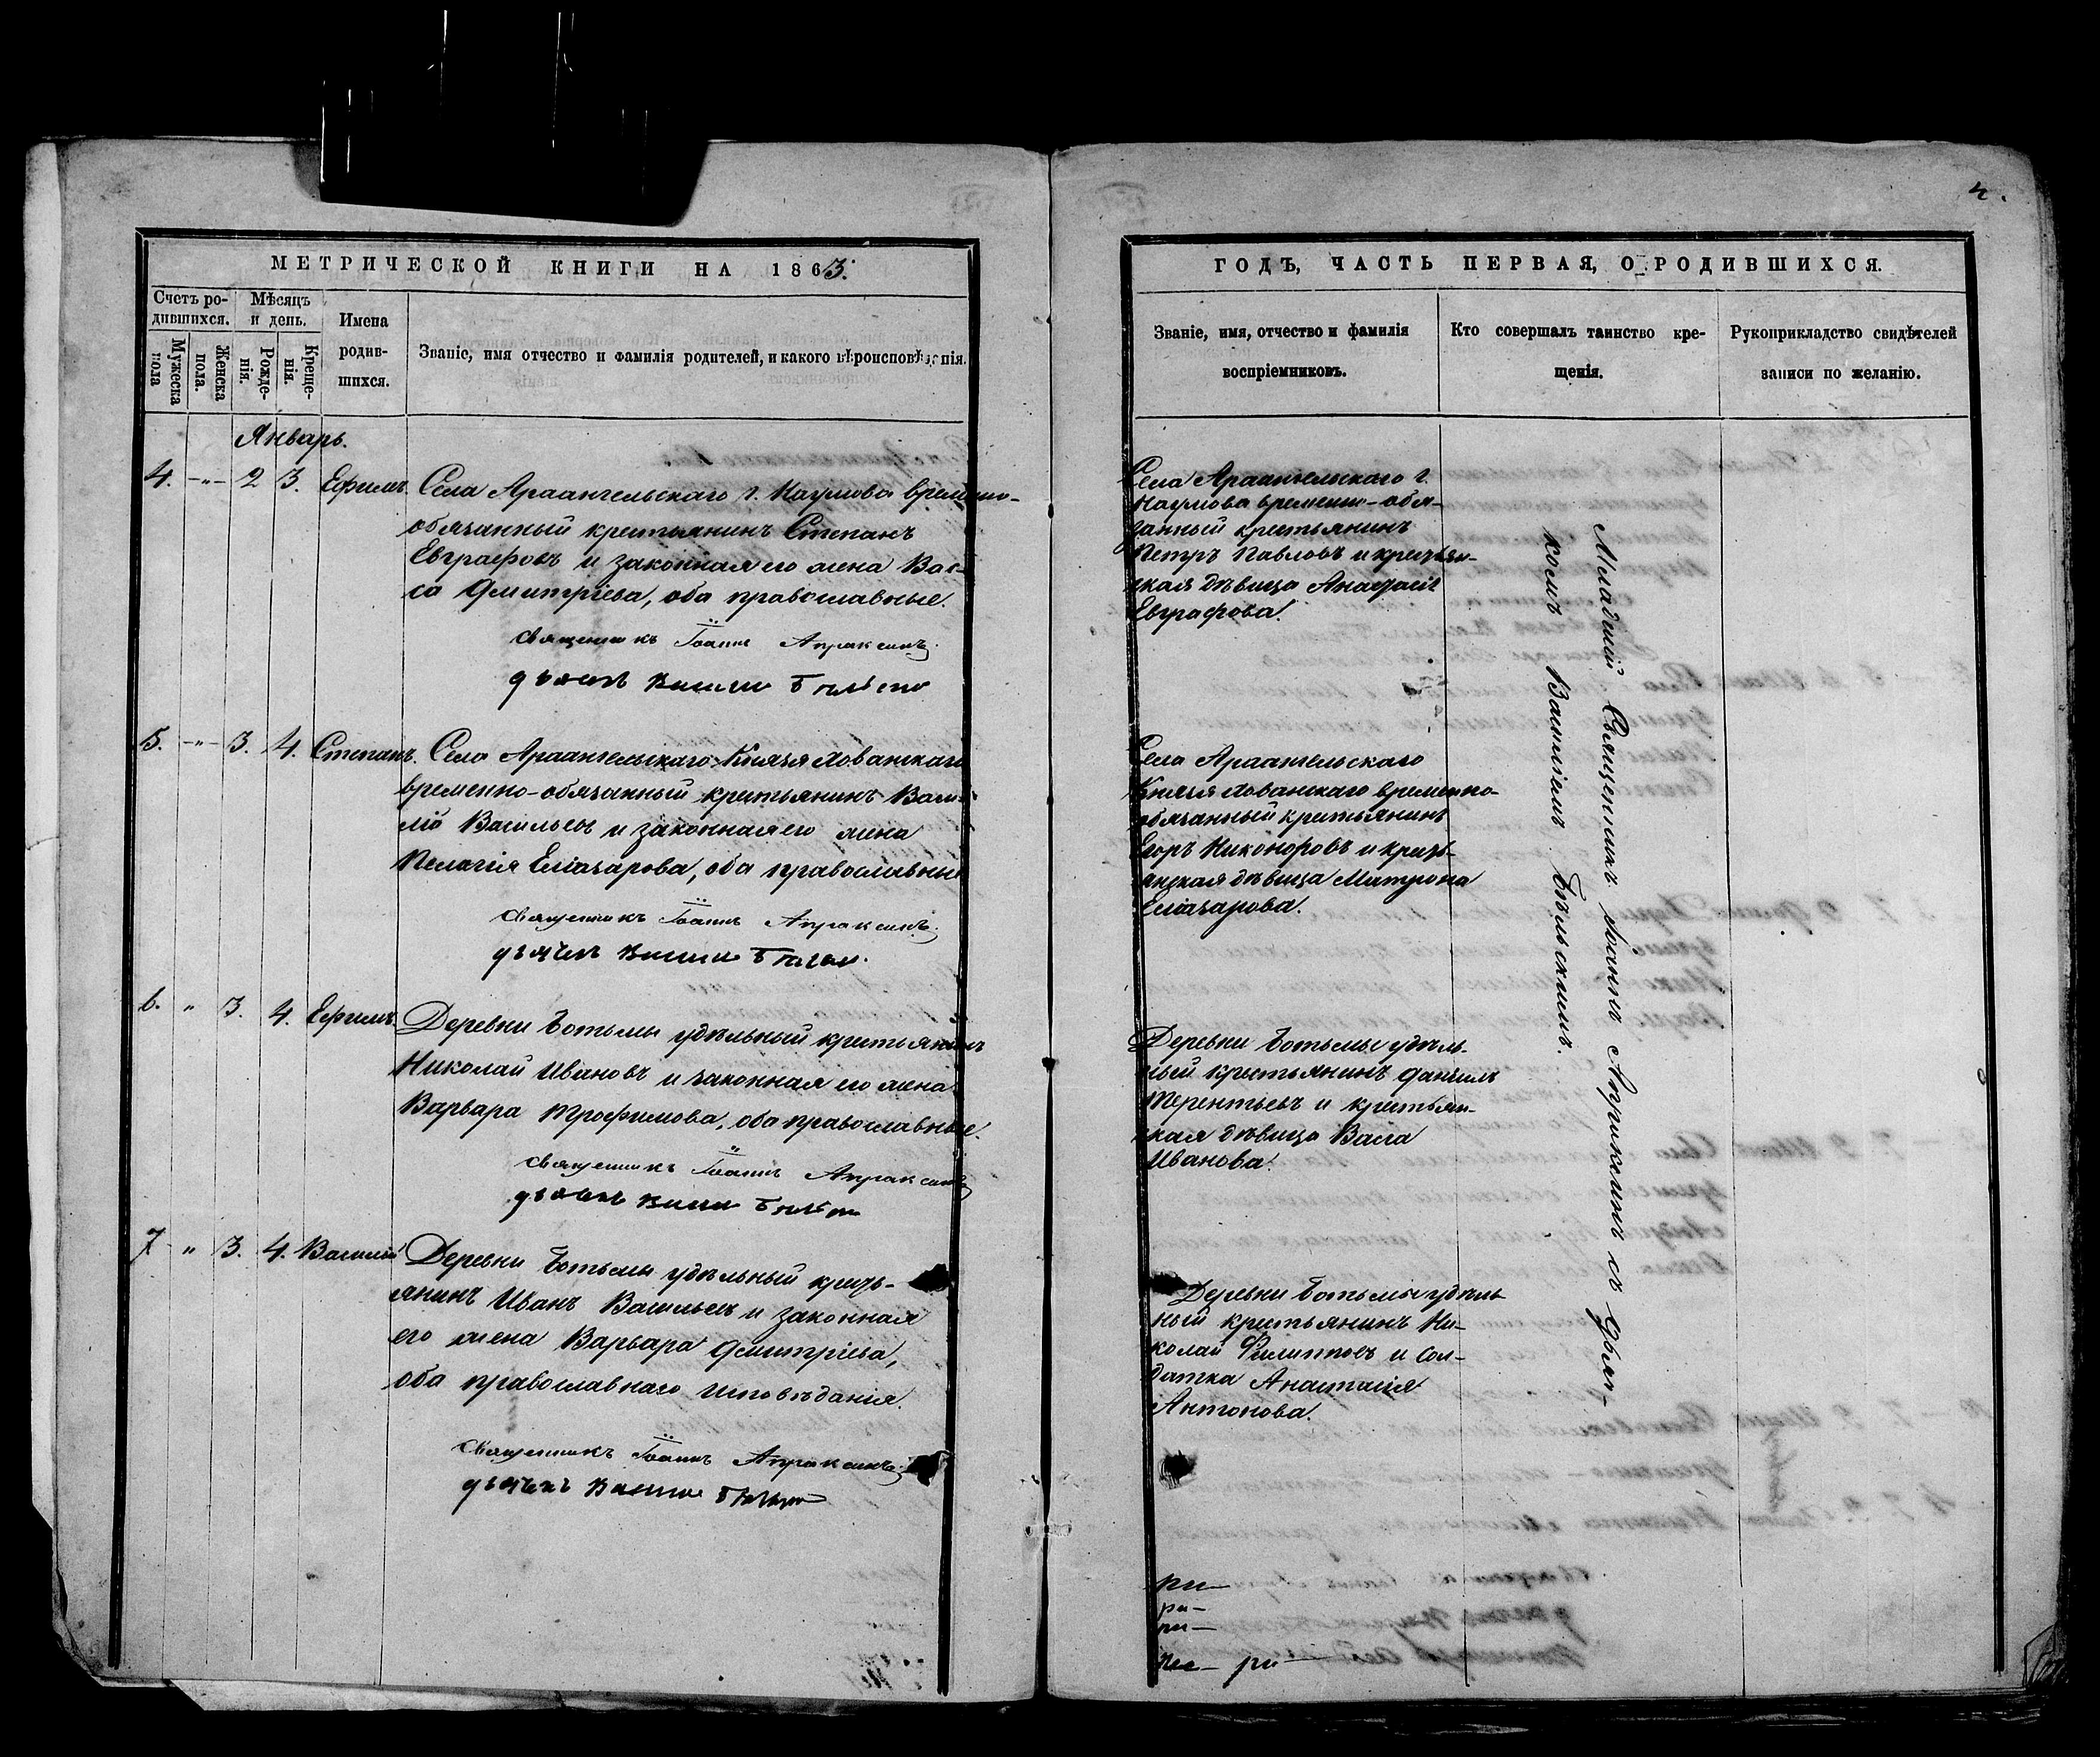 МЕТРИЧЕСКОЙ КНИГИ НА 1863.
Счетъ ро-
дившихся.
Мѣсяцъ
и день.
Имена
родив-
шихся.
Званіе, имя отчество и фамилія родителей, и какого вѣроисповѣданія.
Мужеска
пола
Женска
пола.
Рожде-
нія.
Креще-
нія.
Январь.
4. -"- 2 3. Ефимъ. Села Архангельскаго г. Наумова временно-
обязанный крестьянинъ Степанъ
Евграфовъ и законная его жена Вас-
са Дмитріева, оба православные.
Священникъ Іоаннъ Апраксинъ.
дьячекъ Василий
5. -"- 3. 4. Степанъ. Села Архангельскаго Князя Хованскаго
временно-обязанный крестьянинъ Васи-
лій Васильевъ и законная его жена
Пелагія Еліазарова, оба православные
Священникъ Іоаннъ Апраксинъ.
дьячекъ Василий
6. " 3. 4. Ефимъ. Деревни Ботьмы удѣльный крестьянинъ
Николай Ивановъ и законная его жена
Варвара Трофимова, оба православные.
Священникъ Іоаннъ Апраксинъ
дьячекъ Василий
7 " 3. 4. Василій Деревни Ботьмы удѣльный кресть-
янинъ Иванъ Васильевъ и законная
его жена Варвара Дмитріева,
оба православнаго исповѣданія.
Священникъ Іоаннъ Апраксинъ.
дьячекъ Василий
4.
ГОДЪ, ЧАСТЬ ПЕРВАЯ, О РОДИВШИХСЯ.
Званіе, имя, отчество и фамилія
воспріемниковъ.
Кто совершалъ таинство кре-
щенія.
Рукоприкладство свидѣтелей
записи по желанію.
Села Архангельскаго г.
Наумова временно-обя-
занный крестьянинъ
Петръ Павловъ и крестьян-
ская дѣвица Анафасія
Евграфова.
Села Архангельскаго
Князя Хованскаго временно-
обязанный крестьянинъ
Егоръ Никоноровъ и кресть-
янская дѣвица Матрона
Еліазарова.
Деревни Ботьмы удѣль-
ный крестьянинъ Даніилъ
Терентьевъ и крестьян-
ская дѣвица Васса
Иванова.
Деревни Ботьмы удѣль
ный крестьянинъ Ни-
колай Филипповъ и сол-
датка Анастасія
Антонова.
Младшій Священникъ Іоаннъ Апраксинъ съ дьяч-
комъ Василіемъ Бѣльскимъ.